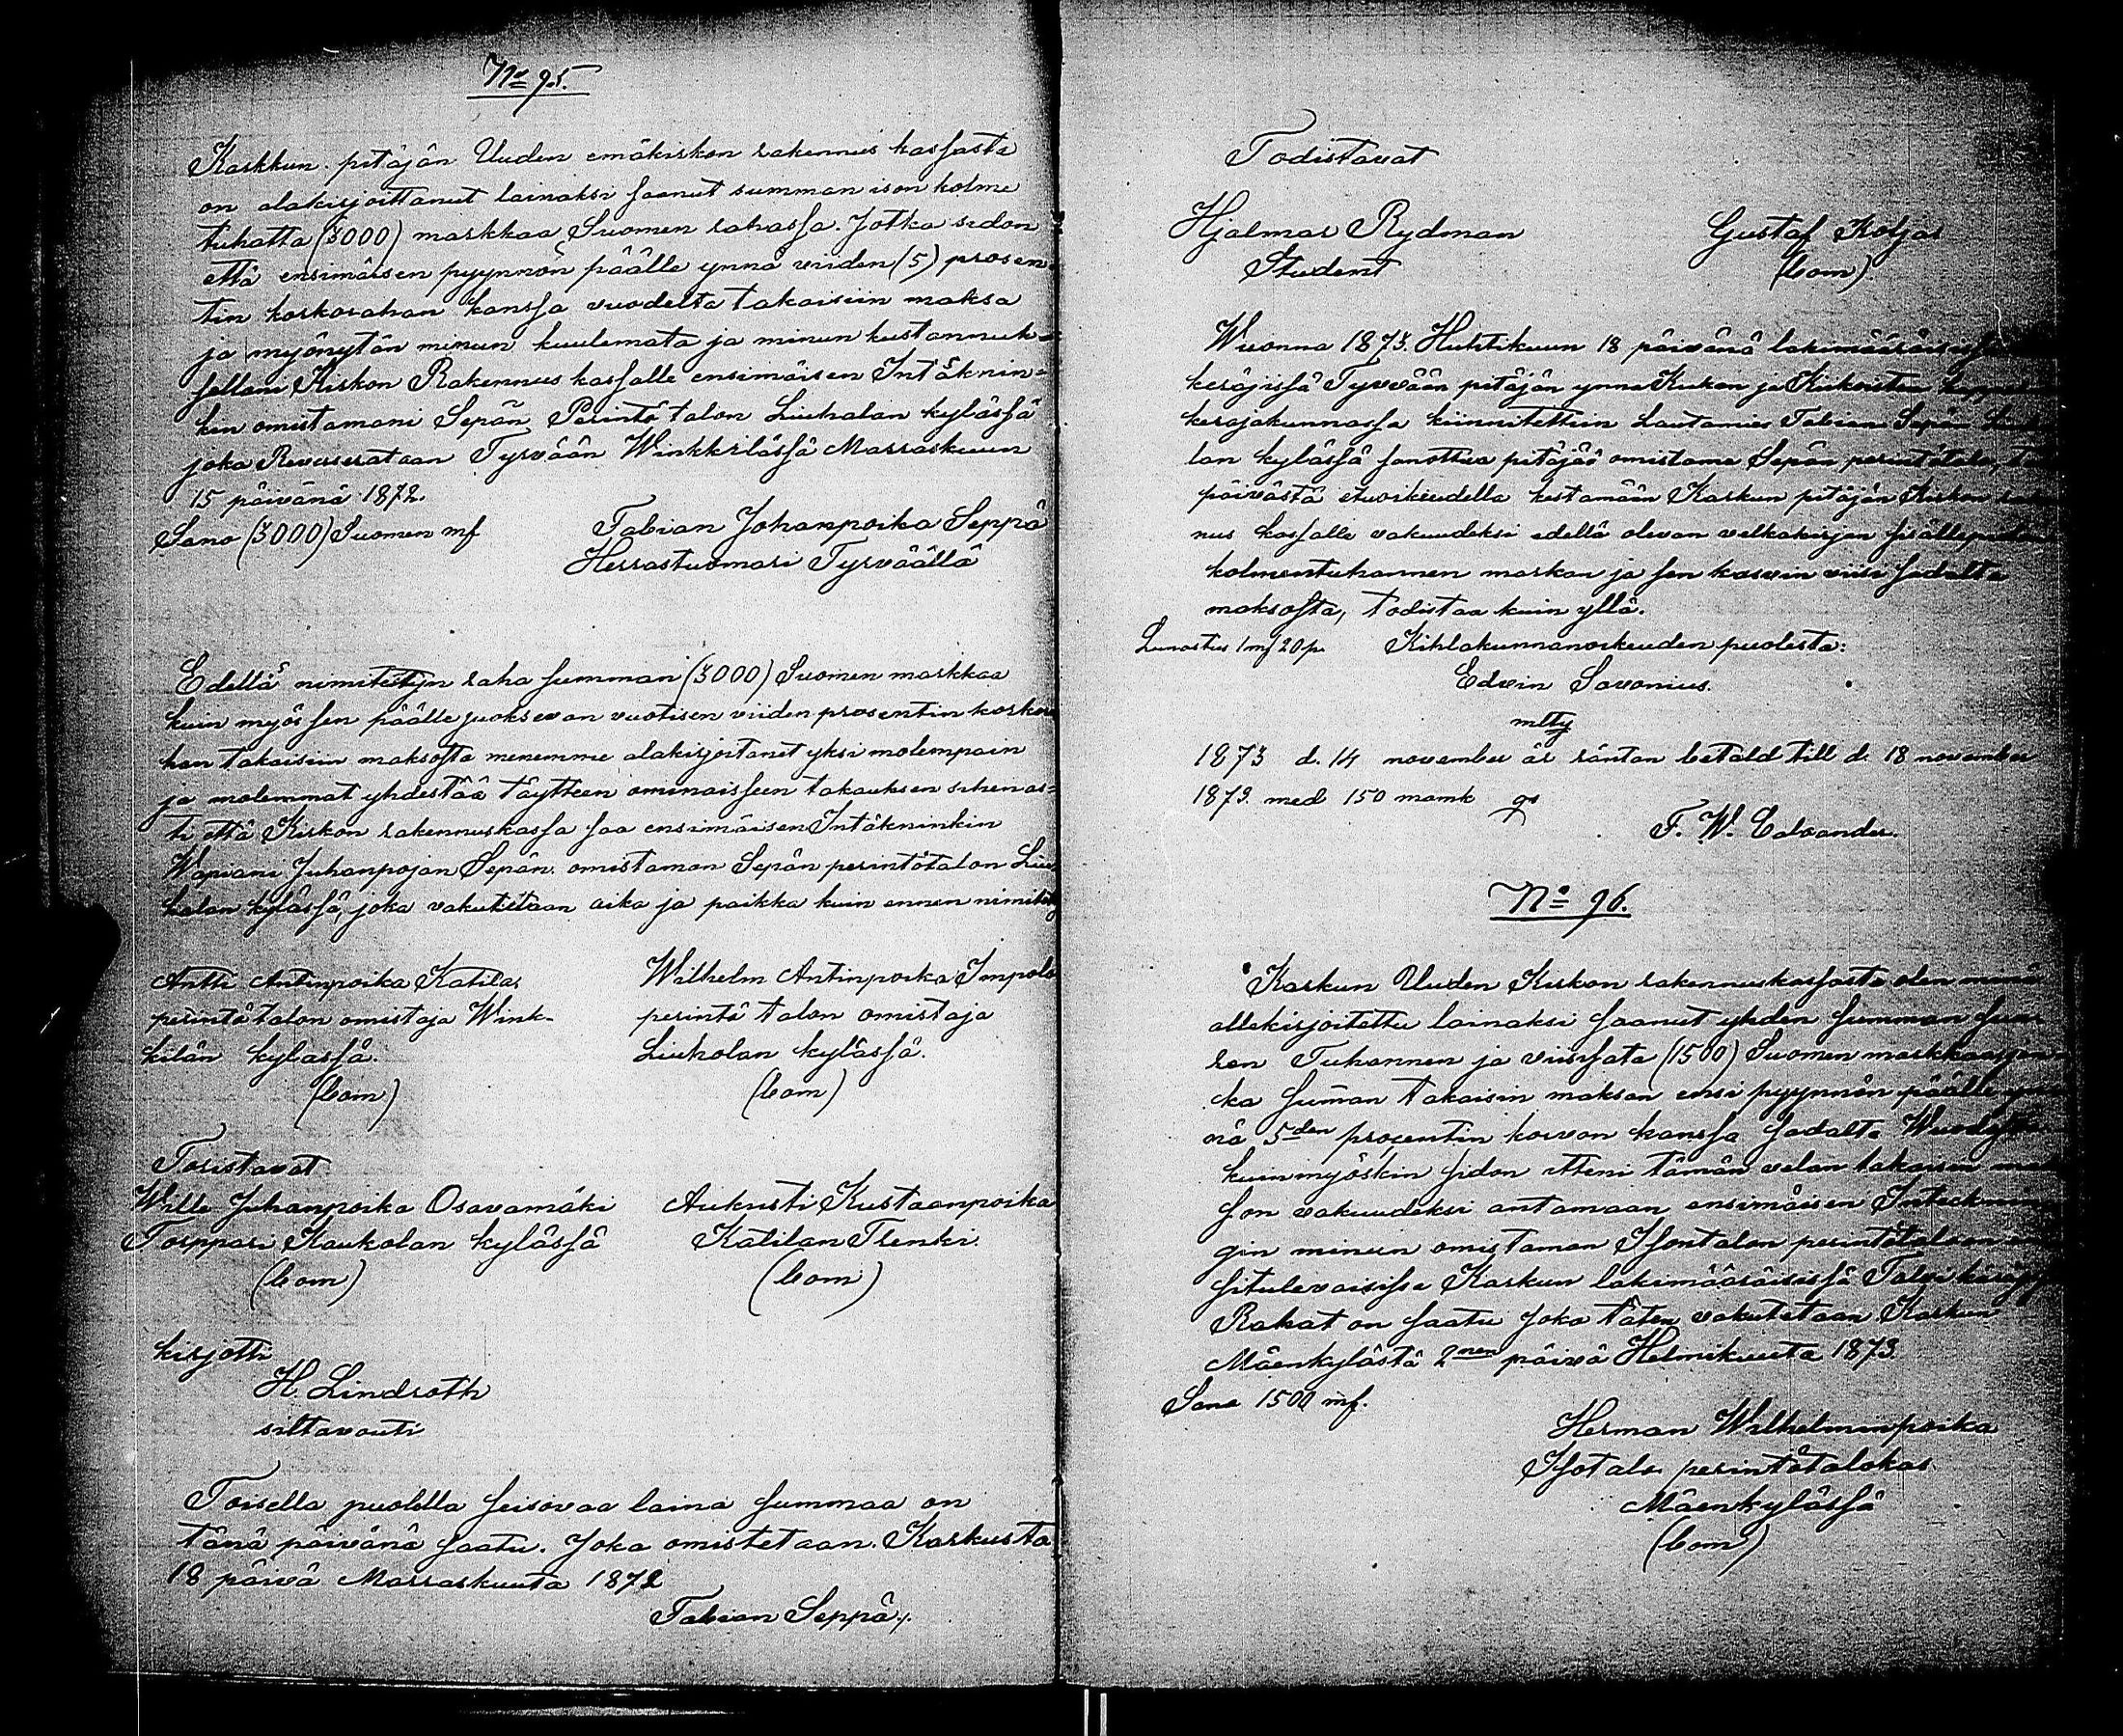 No 95.
Karkkun pitäjän Uuden emäkirkon rakennus kassasta
on alakirjoittanut lainaksi saanut summan ison kolme
tuhatta (3000) markkaa Suomen rahassa. Jotka sidon
että ensimäisen pyynnön päälle ynnä viiden (5) prosen-
tin korkorahan kanssa vuodelta takaisiin maksa
ja myönytän minun kuulemata ja minun kustannuk-
sellani Kirkon Rakennus kassalle ensimäisen Intäknin-
kin omistamani Sepän Perintö talon Liuhalan kylässä
joka Reverserataan Tyrvään Winkkilässä Marraskuun
15 päivänä 1872.
Sano (3000) Suomen mk
Fabian Johanpoika Seppä
Herrastuomari Tyrväällä
Edellä nimitettyn raha summan (3000) Suomen markkaa
kuin myös sen päälle juoksevan vuotisen viiden prosentin korkora
han takaisiin maksosta menemme alakirjoitanet yksi molempain
ja molemmat yhdestää täytteen ominaisseen takauksen siihen as-
ti että Kirkon rakennuskassa saa ensimäisen Intäkninkin
Wapiani Juhanpojan Sepän omistaman Sepän perintötalon Liu
halan kylässä, joka vakutetaan aika ja paikka kuin ennen nimitetty
Antti Antinpoika Katila
perintö talon omistaja Wink-
kilän kylässä.
(bom)
Wilhelm Antinpoika Impola
perintö talon omistaja
Liuhalan kylässä.
(bom)
Toristavat
Wille Juhanpoika Osavamäki
Torppari Kaukolan kylässä
(bom)
Aukusti Kustaanpoika
Katilan Trenki.
(bom)
kirjotti
H. Lindroth
siltavouti
Toisella puolella seisovaa laina summaa on
tänä päivänä saatu. Joka omistetaan. Karkusta
18 päivä Marraskuuta 1872
Fabian Seppä
Todistavat
Hjalmar Rydman
Student
Gustaf Koljas
(bom)
Wuonna 1873. Huhtikuun 18 päivänä lakimääräisessä
keräjissä Tyrvään pitäjän ynnä Kiikan ja Kiikoisten kappeli
keräjakunnassa kiinnitettiin Lautamies Fabian Sepän Liuha
lan kylässä sanottua pitäjää omistama Sepän perintötalo,
päivästä etuoikeudella kestamään Karkun pitäjän Kirkon raken
nus kassalle vakuudeksi edellä olevan velkakirjan sisällepitävän
kolmentuhannen markan ja sen kasvin viisi sadalta
maksosta, todistaa kuin yllä.
Lunastus 1 mk 20 p. Kihlakunnanoikeuden puolesta:
Edvin Savonius.
mltg
1873 d. 14 november är räntan betald till d. 18 november
1873. med 150 mamk qs
F. W. Calvander.
No 96.
Karkun Uuden Kirkon rakennuskassasta olen minä
allekirjoitettu lainaksi saanut yhden summan suu
ren Tuhannen ja viisisata (1500) Suomen markkaa jon
ka suman takaisin maksan ensi pyynnön päälle yn
nä 5den procentin korvon kanssa sadalta Wuodelta
kuin myöskin sidon itteni tämän velan takaisin mak
son vakuudeksi antamaan ensimäisen Inteckni
gin minun omistaman Isontalon perintötaloon
situlevaisissa Karkun lakimääräisissä Talvi käräjissä
Rahat on saatu Joka täten vakutetaan Karkun
Mäenkylästä 2nen päivä Helmikuuta 1873.
Sano 1500 mk.
Herman Wilhelminpoika
Isotalo perintötalokas
Mäenkylässä
(bom)